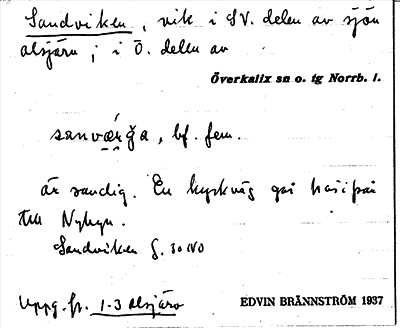 Sandviken, vik i SV. delen av sjön
alsjärv; i Ö. delen av
Överkalix sn o. tg Norrb. l.
sanvǽrǧa, bf. fem.
är sandig. En kyrkväg går härifrån
till Nybyn.
Sandviken G. 30 NO
Uppg. fr. 1-3 Alsjärv
EDVIN BRÄNNSTRÖM 1937